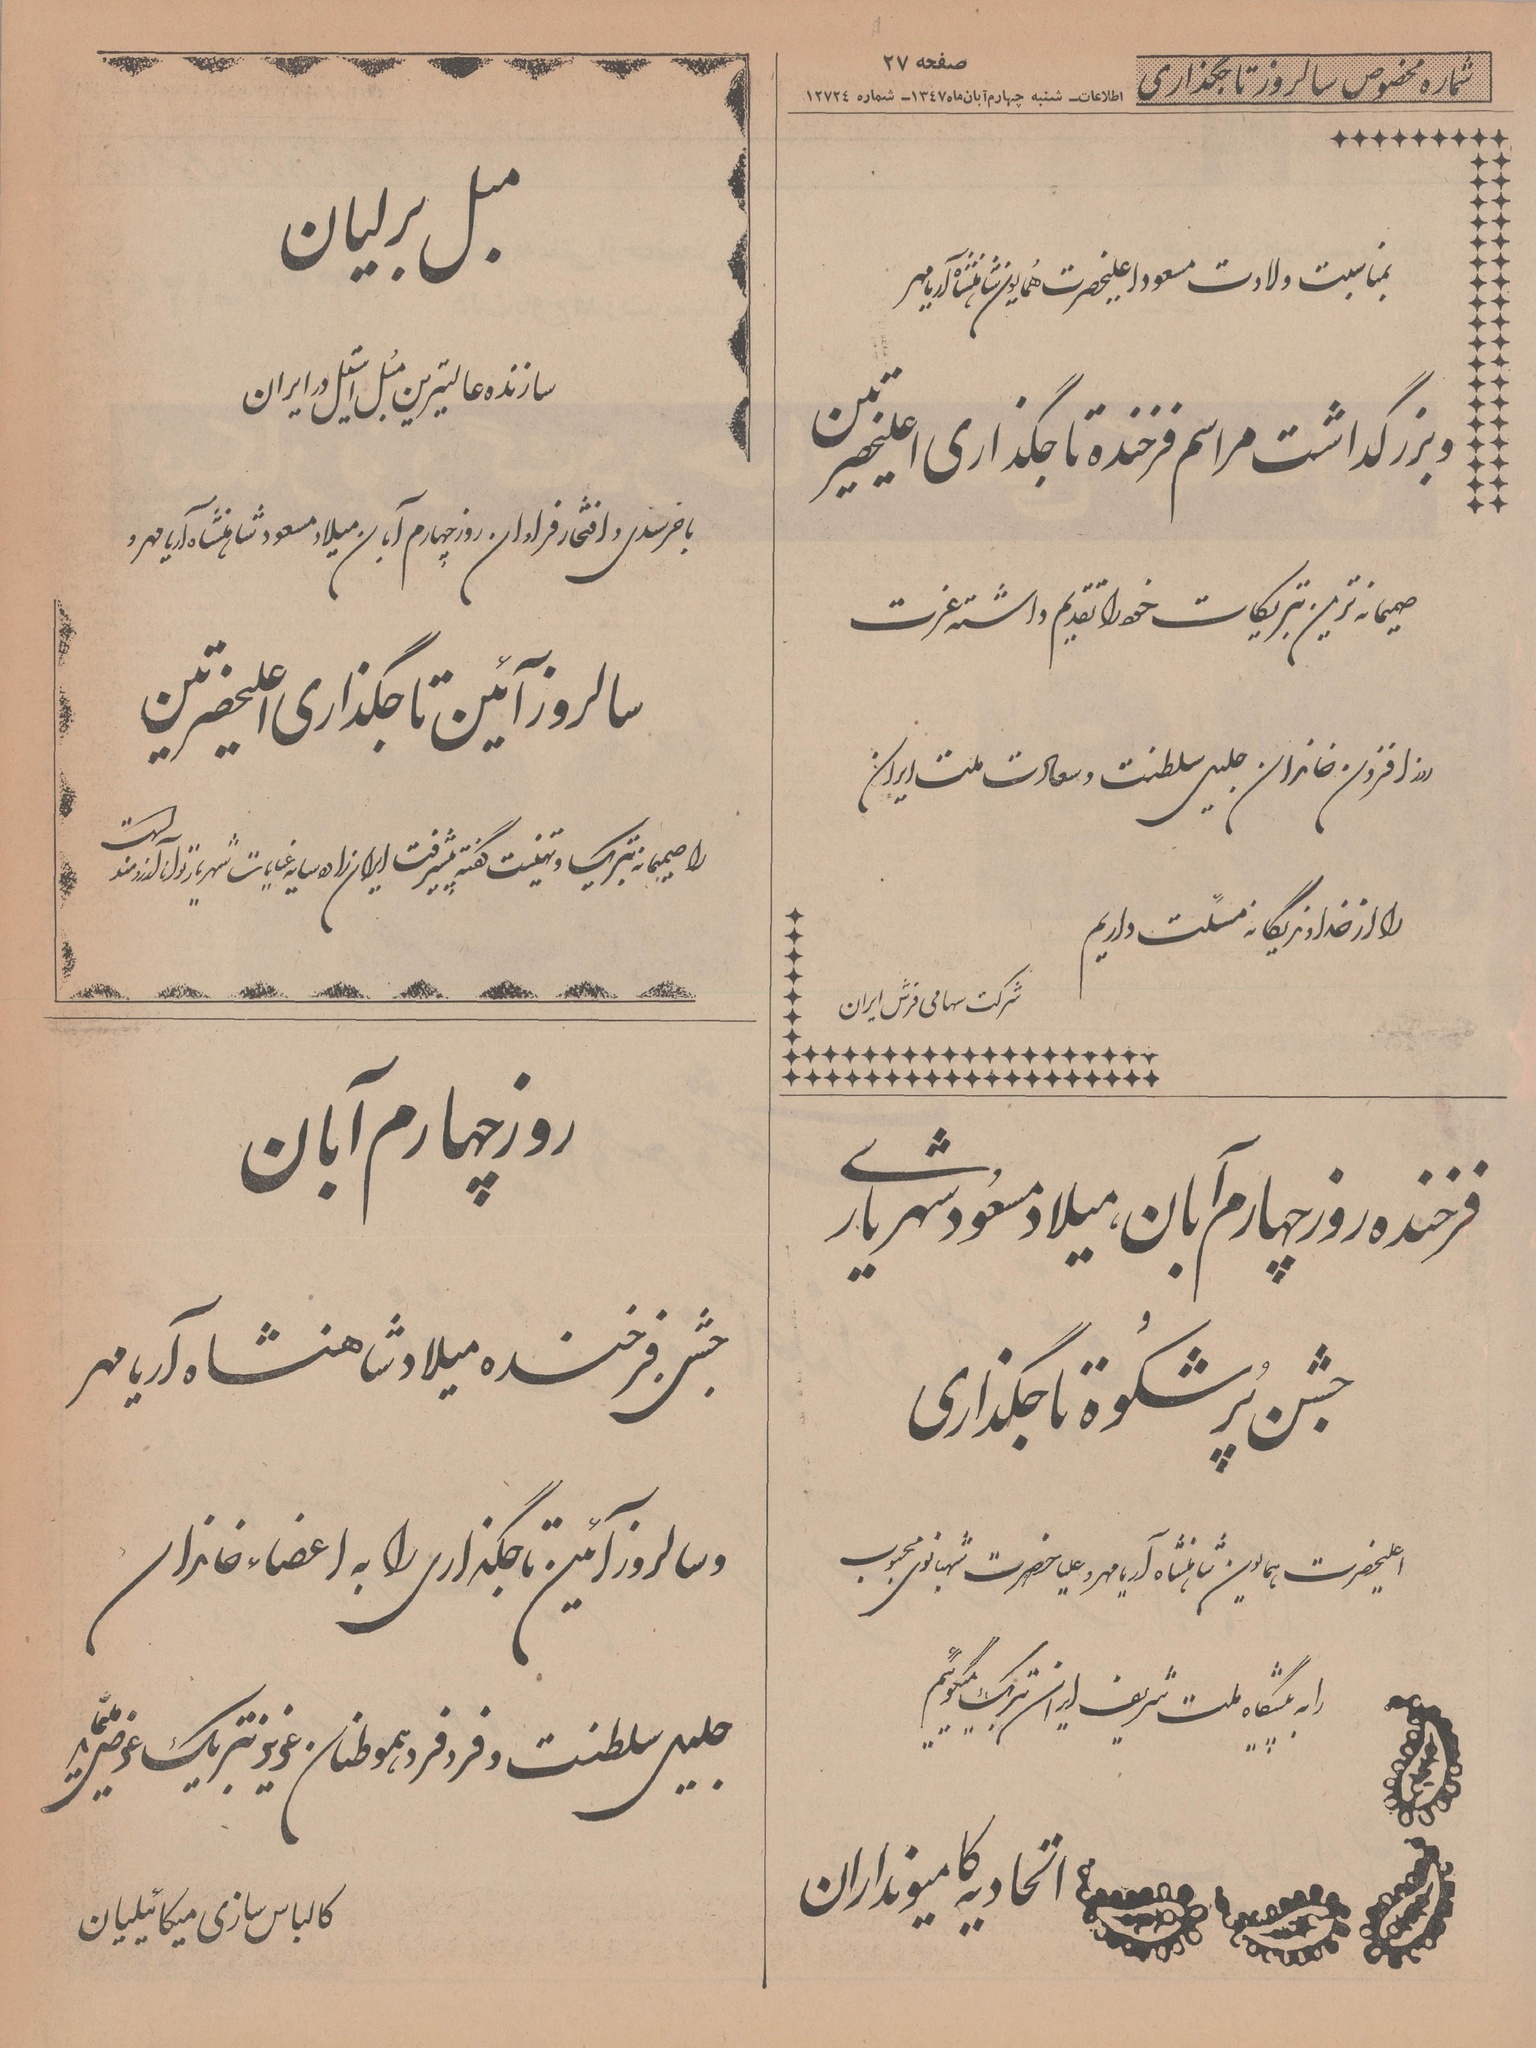 شماره مخصوص سالروز تاجگذاری
صفحه ۲۷
اطلاعات ـ شنبه چهارم آبان ماه ۱۳۴۷ ـ شماره ۱۲۷۲۴
بمناسبت ولادت مسعود اعلیحضرت همایون شاهنشاه آریامهر
و بزرگداشت مراسم فرخنده تاجگذاری اعلیحضرتین
صمیمانه ترین تبریکات خود را تقدیم داشته عزت
روز افزون خاندان جلیل سلطنت و سعادت ملت ایران
را از خداوند یگانه مسئلت داریم
شرکت سهامی فرش ایران
فرخنده روز چهارم آبان، میلاد مسعود شهریاری
جشن پُرشکوه تاجگذاری
اعلیحضرت همایون شاهنشاه آریامهر و علیاحضرت شهبانوی محبوب
را به پیشگاه ملت شریف ایران تبریک میگوئیم
اتحادیه کامیونداران
مبل برلیان
سازنده عالیترین مُبل استیل در ایران
با خرسندی و افتخار فراوان روز چهارم آبان میلاد مسعود شاهنشاه آریامهر و
سالروز آئین تاجگذاری اعلیحضرتین
را صمیمانه تبریک و تهنیت گفته پیشرفت ایران را در سایه عنایات شهریار توانا آرزومند است
روز چهارم آبان
جشن فرخنده میلاد شاهنشاه آریامهر
و سالروز آئین تاجگذاری را به اعضاء خاندان
جلیل سلطنت و فرد فرد هموطنان عزیز تبریک عرض مینماید
کالباس سازی میکائیلیان